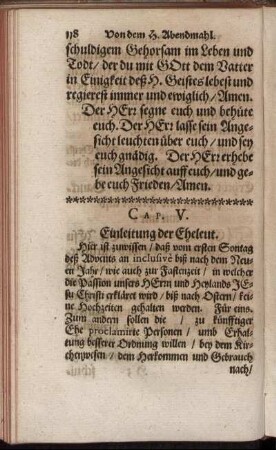 118 Von dem H. Abendmahl.
schuldigem Gehorsam im Leben und
Todt/ der du mit GOtt dem Vatter
in Einigkeit deß H. Geistes lebest und
regierest immer und ewiglich/ Amen.
Der HErr segne euch und behüte
euch. Der HErr lasse sein Ange-
sicht leuchten über euch/ und sey
euch gnädig. Der HErr erhebe
sein Angesicht auff euch/ und ge-
be euch Frieden/ Amen.
CAP. V.
Einleitung der Eheleut.
Hier ist zuwissen/ daß vom ersten Sontag
deß Advents an inclusivè biß nach dem Neu-
en Jahr/ wie auch zur Fastenzeit/ in welcher
die Passion unsers HErrn und Heylands JE-
su Christi erkläret wird/ biß nach Ostern/ kei-
ne Hochzeiten gehalten werden. Für eins.
Zum andern sollen die / zu künfftiger
Ehe proclamirte Personen/ umb Erhal-
tung besserer Ordnung willen/ bey dem Kir-
chenwesen/ dem Herkommen und Gebrauch
nach/